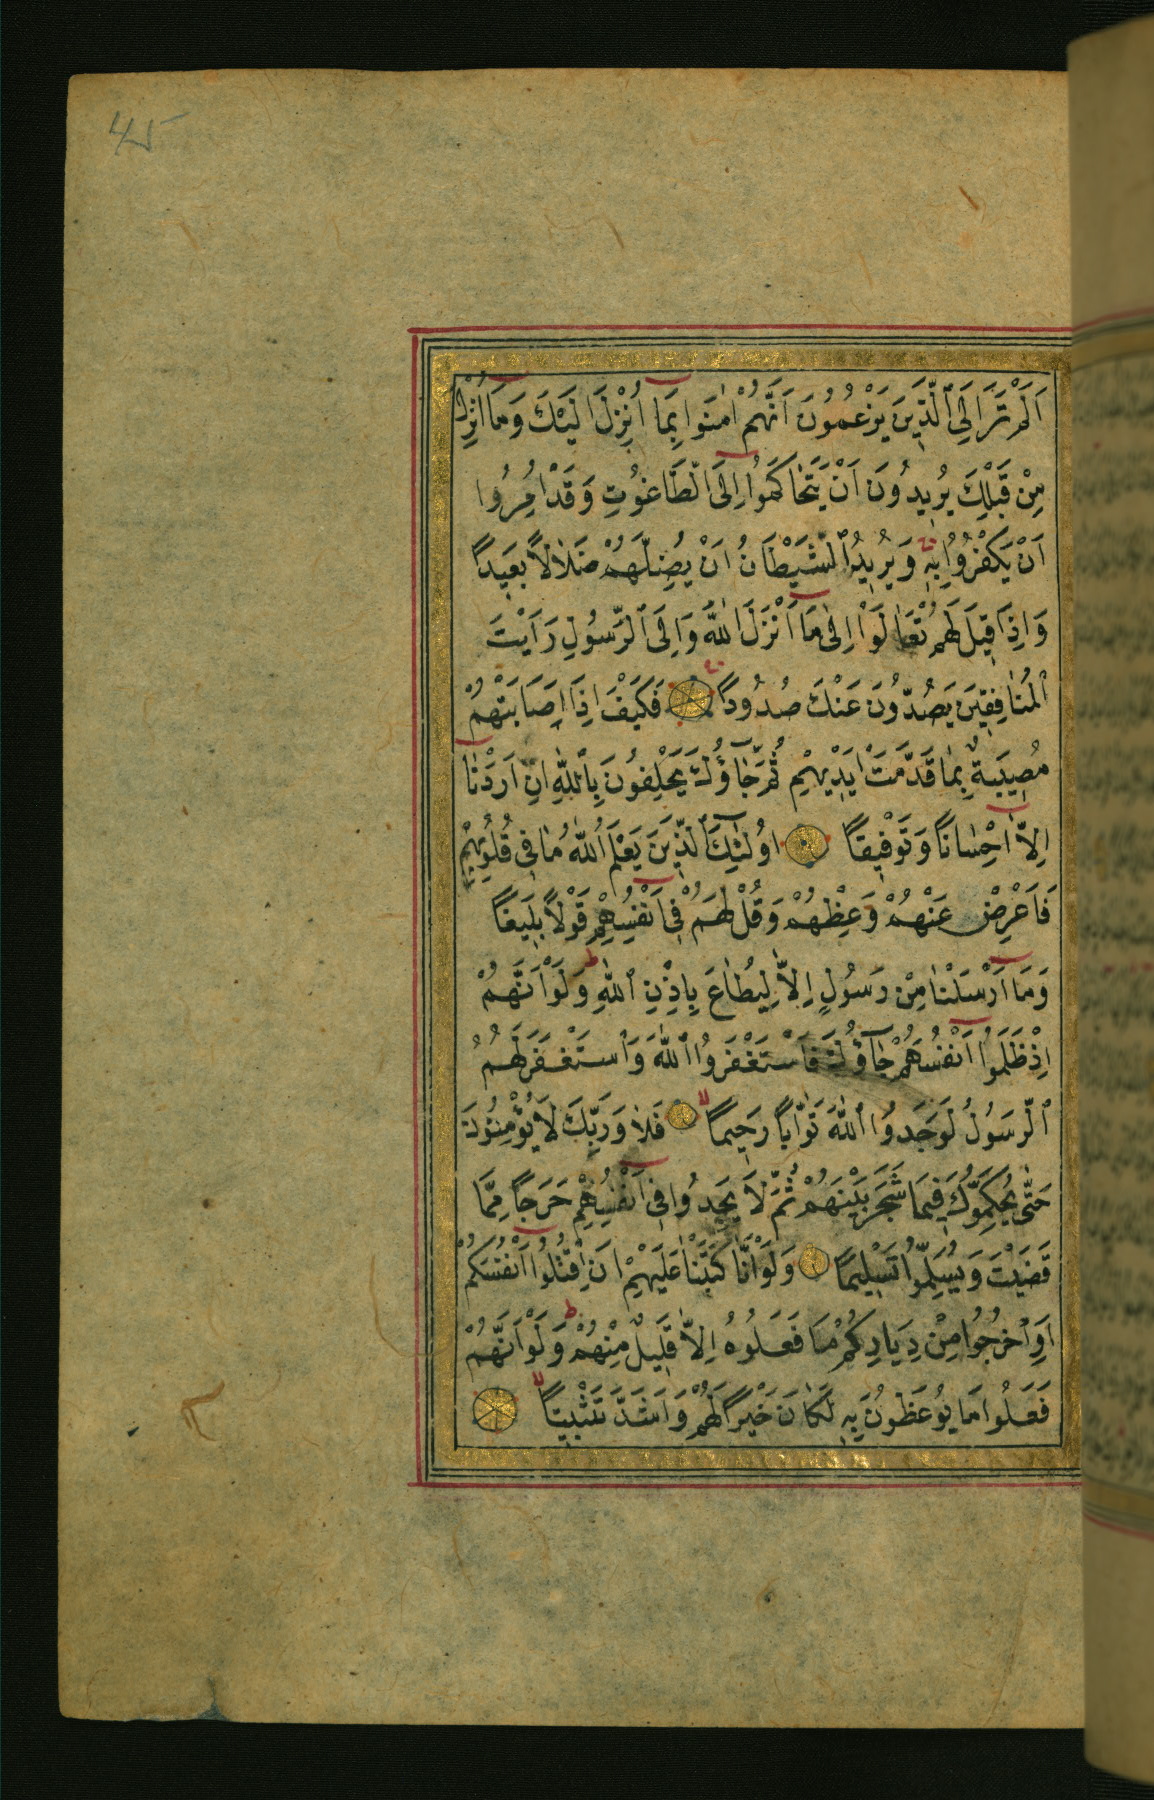 45
اَلَمْ تَرَ اِلَى ٱلَّذِينَ يَزْعُمُونَ اَنَّهُمْ اٰمَنُوا بِمَٓا اُنْزِلَ اِلَيْكَ وَمَٓا اُنْزِلَ
مِنْ قَبْلِكَ يُرِيدُونَ اَنْ يَتَحَاكَمُٓوا اِلَى ٱلطَّاغُوتِ وَقَدْ اُمِرُوا
اَنْ يَكْفُرُوا بِهِ وَيُرِيدُ ٱلشَّيْطَانُ اَنْ يُضِلَّهُمْ ضَلَالًا بَعِيدًا
وَاِذَا قِيلَ لَهُمْ تَعَالَوْا اِلٰى مَٓا اَنْزَلَ ٱللّٰهُ وَاِلَى ٱلرَّسُولِ رَاَيْتَ
ٱلْمُنَافِقِينَ يَصُدُّونَ عَنْكَ صُدُودًا فَكَيْفَ اِذَٓا اَصَابَتْهُمْ
مُصِيبَةٌ بِمَا قَدَّمَتْ اَيْدِيهِمْ ثُمَّ جَٓاؤُكَ يَحْلِفُونَ بِٱللّٰهِ اِنْ اَرَدْنَٓا
اِلَّٓا اِحْسَانًا وَتَوْفِيقًا اُولٰٓئِكَ ٱلَّذِينَ يَعْلَمُ ٱللّٰهُ مَا فِى قُلُوبِهِمْ
فَاَعْرِضْ عَنْهُمْ وَعِظْهُمْ وَقُلْ لَهُمْ فِٓى اَنْفُسِهِمْ قَوْلًا بَلِيغًا
وَمَٓا اَرْسَلْنَا مِنْ رَسُولٍ اِلَّا لِيُطَاعَ بِاِذْنِ ٱللّٰهِ وَلَوْ اَنَّهُمْ
اِذْ ظَلَمُٓوا اَنْفُسَهُمْ جَٓاؤُكَ فَاسْتَغْفَرُوا ٱللّٰهَ وَٱسْتَغْفَرَ لَهُمُ
ٱلرَّسُولُ لَوَجَدُوا ٱللّٰهَ تَوَّابًا رَحِيمًا فَلَا وَرَبِّكَ لَا يُؤْمِنُونَ
حَتّٰى يُحَكِّمُوكَ فِيمَا شَجَرَ بَيْنَهُمْ ثُمَّ لَا يَجِدُوا فِٓى اَنْفُسِهِمْ حَرَجًا مِمَّا
قَضَيْتَ وَيُسَلِّمُوا تَسْلِيمًا وَلَوْ اَنَّا كَتَبْنَا عَلَيْهِمْ اَنِ اقْتُلُٓوا اَنْفُسَكُمْ
اَوِ ٱخْرُجُوا مِنْ دِيَارِكُمْ مَا فَعَلُوهُ اِلَّا قَلِيلٌ مِنْهُمْ وَلَوْ اَنَّهُمْ
فَعَلُوا مَا يُوعَظُونَ بِهِ لَكَانَ خَيْرًا لَهُمْ وَاَشَدَّ تَثْبِيتًا